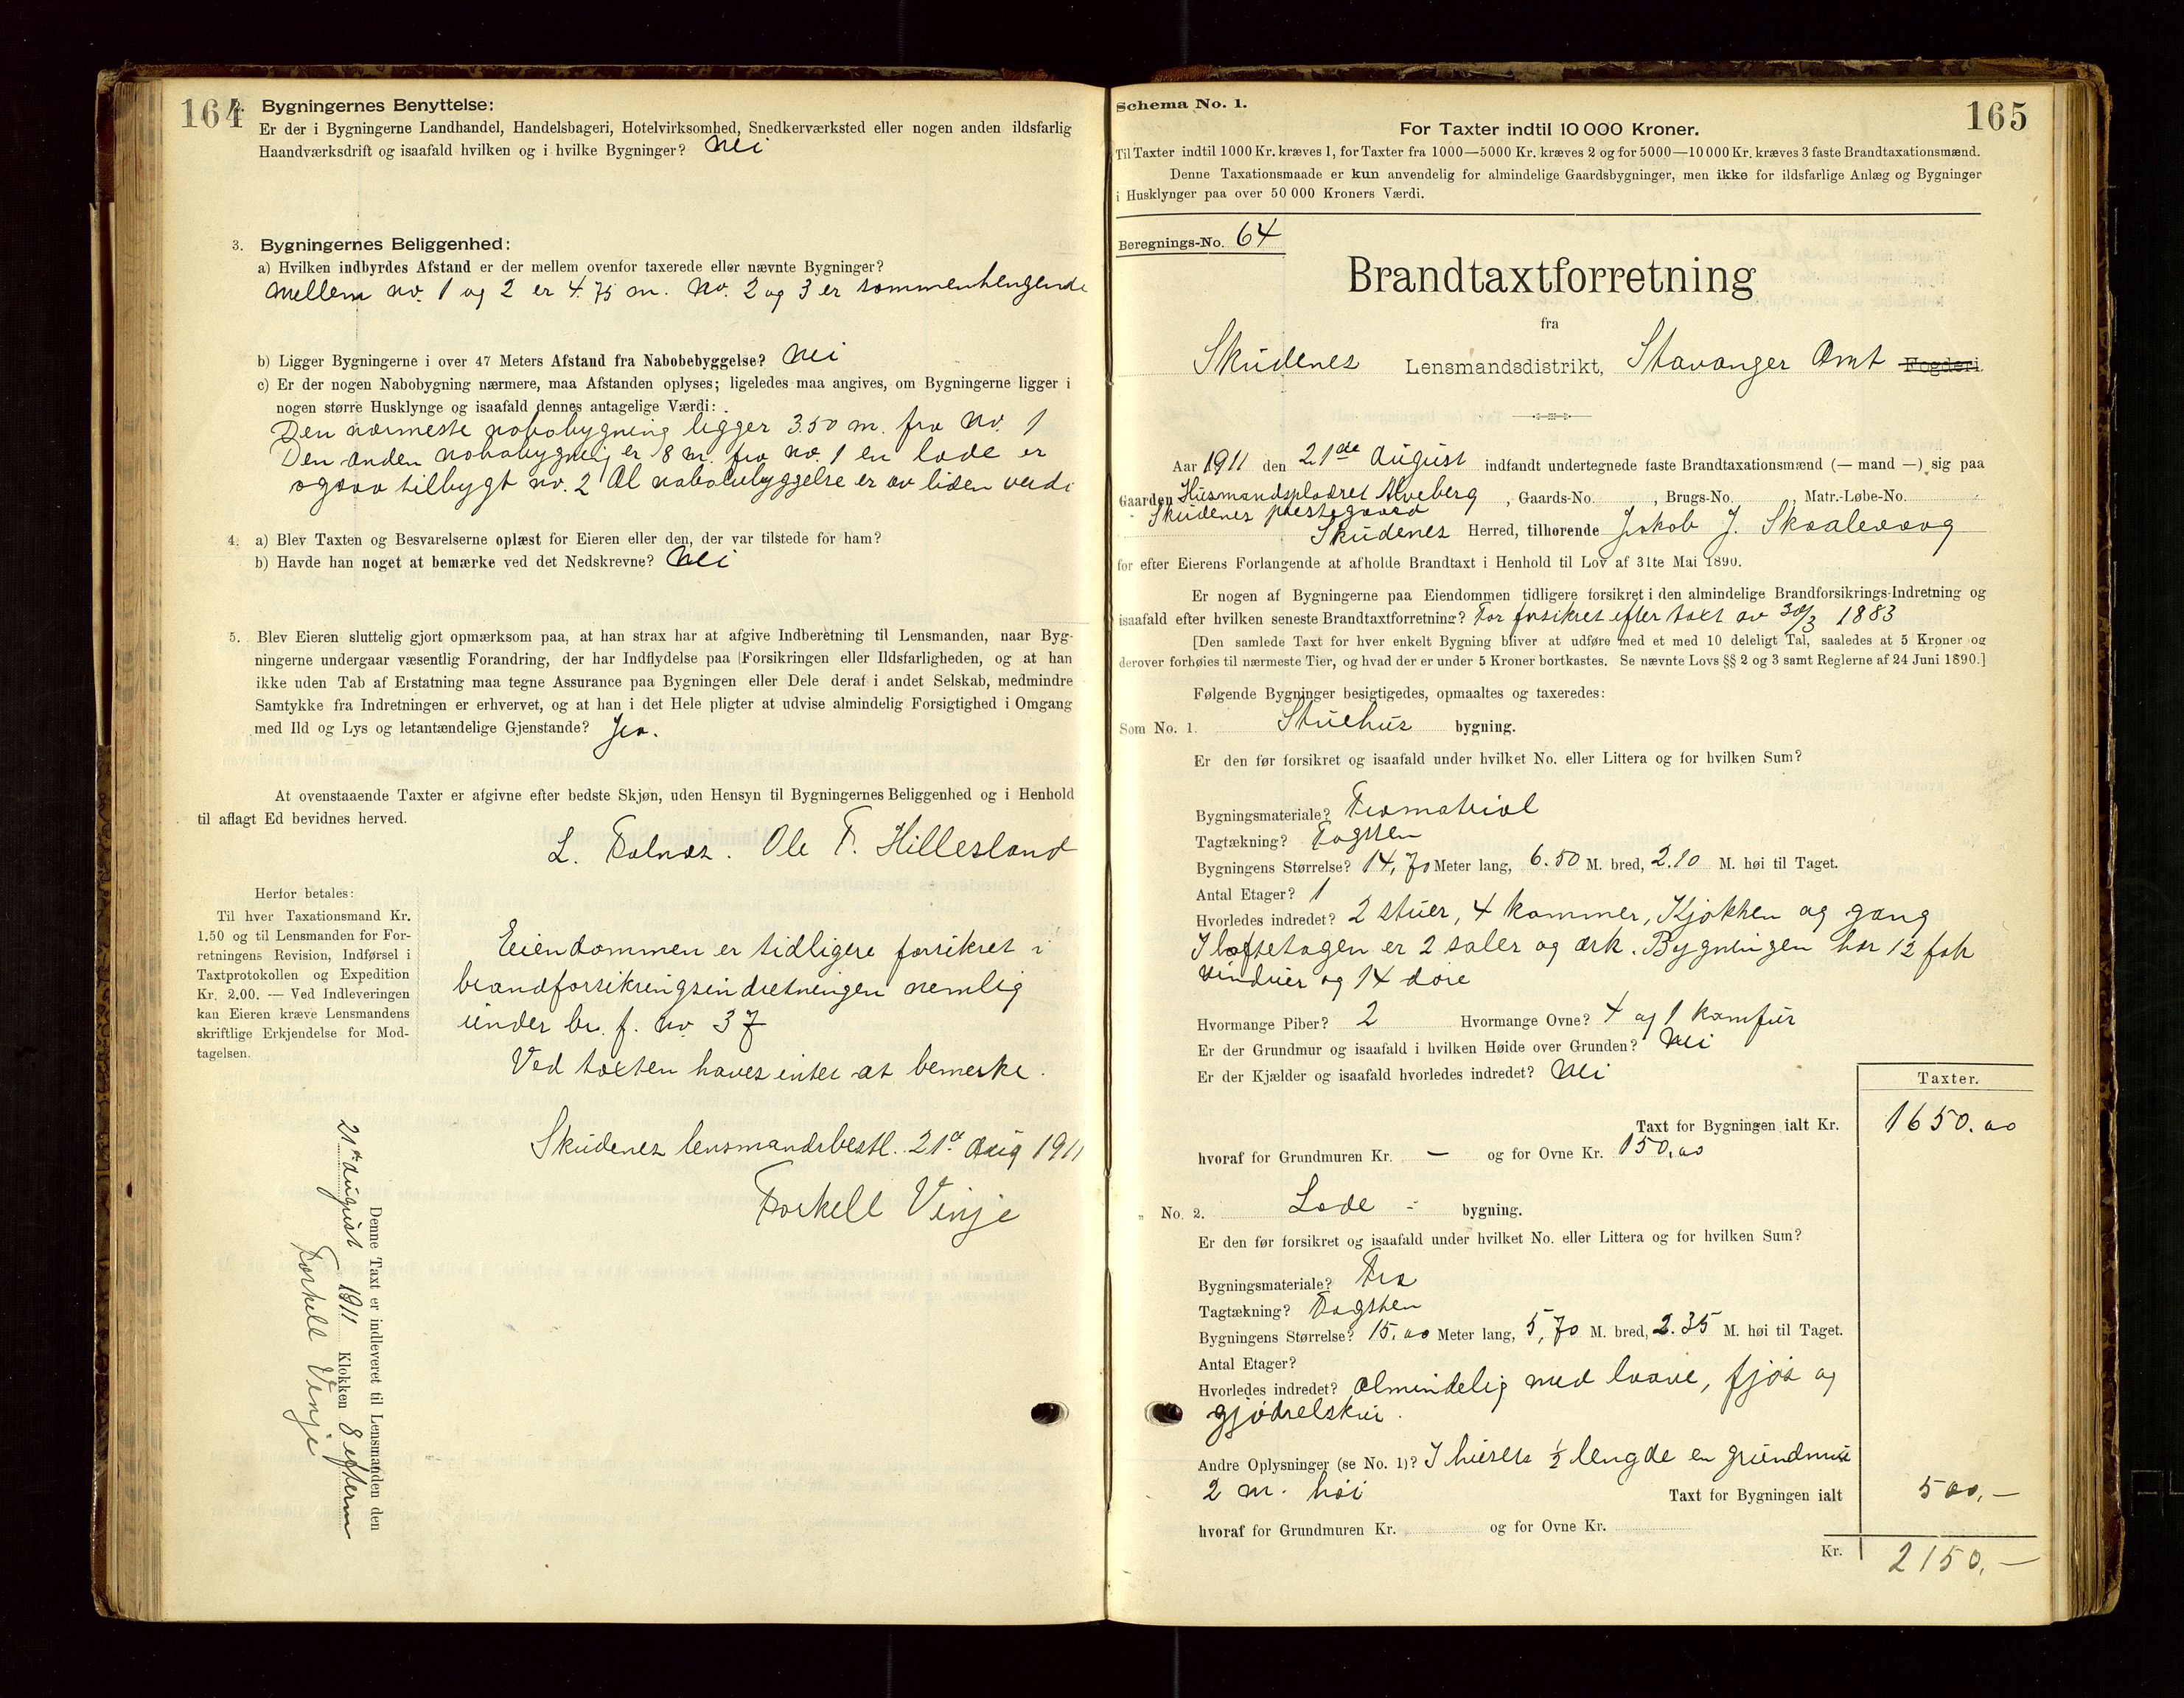 164
2. Bygningernes Benyttelse:
Er der i Bygningerne Landhandel, Handelsbageri, Hotelvirksomhed, Snedkerværksted eller nogen anden ildsfarlig
Haandværksdrift og isaafald hvilken og i hvilke Bygninger? Nei
3. Bygningernes Beliggenhed:
a) Hvilken indbyrdes Afstand er der mellem ovenfor taxerede eller nævnte Bygninger?
Mellem no. 1 og 2 er 4.75 m. No. 2 og 3 er sammenhengende
b) Ligger Bygningerne i over 47 Meters Afstand fra Nabobebyggelse? Nei
c) Er der nogen Nabobygning nærmere, maa Afstanden oplyses; ligeledes maa angives, om Bygningerne ligger i
nogen større Husklynge og isaafald dennes antagelige Værdi:
Den nærmeste nabobygning ligger 3.50 m. fra no. 1
Den anden nabobygning er 8 m. fra no. 1 en lade er
ogsaa tilbygt no. 2 Al nabobebyggelse er av liden verdi
4. a) Blev Taxten og Besvarelserne oplæst for Eieren eller den, der var tilstede for ham?
b) Havde han noget at bemærke ved det Nedskrevne? Nei
5. Blev Eieren sluttelig gjort opmærksom paa, at han strax har at afgive Indberetning til Lensmanden, naar Byg-
ningerne undergaar væsentlig Forandring, der har Indflydelse paa Forsikringen eller Ildsfarligheden, og at han
ikke uden Tab af Erstatning maa tegne Assurance paa Bygningen eller Dele deraf i andet Selskab, medmindre
Samtykke fra Indretningen er erhvervet, og at han i det Hele pligter at udvise almindelig Forsigtighed i Omgang
med Ild og Lys og letantændelige Gjenstande? Ja.
At ovenstaaende Taxter er afgivne efter bedste Skjøn, uden Hensyn til Bygningernes Beliggenhed og i Henhold
til aflagt Ed bevidnes herved.
L. Falnæs. Ole T. Hillesland
Herfor betales:
Til hver Taxationsmand Kr.
1.50 og til Lensmanden for For-
retningens Revision, Indførsel i
Taxtprotokollen og Expedition
Kr. 2.00. — Ved Indleveringen
kan Eieren kræve Lensmandens
skriftlige Erkjendelse for Mod-
tagelsen.
Eiendommen er tidligere forsikret i
brandforsikringsindretningen nemlig
under br. f. no 37
Ved taxten haves intet at bemerke.
Skudenes lensmandsbestl. 21d Aug 1911
Torkell Vinje
Denne Taxt er indleveret til Lensmanden den
21de August 1911 Klokken 8 efterm
Torkell Vinje
165
Schema No. 1.
For Taxter indtil 10 000 Kroner.
Til Taxter indtil 1000 Kr. kræves 1, for Taxter fra 1000—5000 Kr. kræves 2 og for 5000—10 000 Kr. kræves 3 faste Brandtaxationsmænd.
Denne Taxationsmaade er kun anvendelig for almindelige Gaardsbygninger, men ikke for ildsfarlige Anlæg og Bygninger
i Husklynger paa over 50 000 Kroners Værdi.
Beregnings-No. 64
Brandtaxtforretning
fra
Skudenes Lensmandsdistrikt, Stavanger Amt Fogderi
Aar 1911 den 21de August indfandt undertegnede faste Brandtaxationsmænd (— mand —) sig paa
Gaarden Husmandspladset Alveberg, Gaards-No. , Brugs-No. , Matr.-Løbe-No.
Skudenes prestegaard
Skudenes Herred, tilhørende Jakob J. Skaalevaag
for efter Eierens Forlangende at afholde Brandtaxt i Henhold til Lov af 31te Mai 1890.
Er nogen af Bygningerne paa Eiendommen tidligere forsikret i den almindelige Brandforsikrings-Indretning og
isaafald efter hvilken seneste Brandtaxtforretning? Før forsikret efter taxt av 30/3 1883
[Den samlede Taxt for hver enkelt Bygning bliver at udføre med et med 10 deleligt Tal, saaledes at 5 Kroner og
derover forhøies til nærmeste Tier, og hvad der er under 5 Kroner bortkastes. Se nævnte Lovs §§ 2 og 3 samt Reglerne af 24 Juni 1890.]
Følgende Bygninger besigtigedes, opmaaltes og taxeredes:
Som No. 1. Stuehus bygning.
Er den før forsikret og isaafald under hvilket No. eller Littera og for hvilken Sum?
Bygningsmateriale? Træmatrial
Tagtækning? Tagsten
Bygningens Størrelse? 14,70 Meter lang, 6.50 M. bred, 2.10 M. høi til Taget.
Antal Etager? 1
Hvorledes indredet? 2 stuer, 4 kammer, Kjøkken og gang
I loftetagen er 2 saler og ark. Bygningen har 12 fah
vinduer og 14 døre
Hvormange Piber? 2 Hvormange Ovne? 4 og 1 komfur
Er der Grundmur og isaafald i hvilken Høide over Grunden? Nei
Er der Kjælder og isaafald hvorledes indredet? Nei
Taxter.
Taxt for Bygningen ialt Kr. 1650.00
hvoraf for Grundmuren Kr. — og for Ovne Kr. 150.00
" No. 2. Lade - bygning.
Er den før forsikret og isaafald under hvilket No. eller Littera og for hvilken Sum?
Bygningsmateriale? Træ
Tagtækning? Tagsten
Bygningens Størrelse? 15.00 Meter lang, 5,70 M. bred, 2.35 M. høi til Taget.
Antal Etager?
Hvorledes indredet? Almindelig med laave, fjøs og
gjødselskur.
Andre Oplysninger (se No. 1)? I husets 1/2 lengde en grundmur
2 m. høi Taxt for Bygningen ialt 500,—
hvoraf for Grundmuren Kr. og for Ovne Kr.
Kr. 2150,—